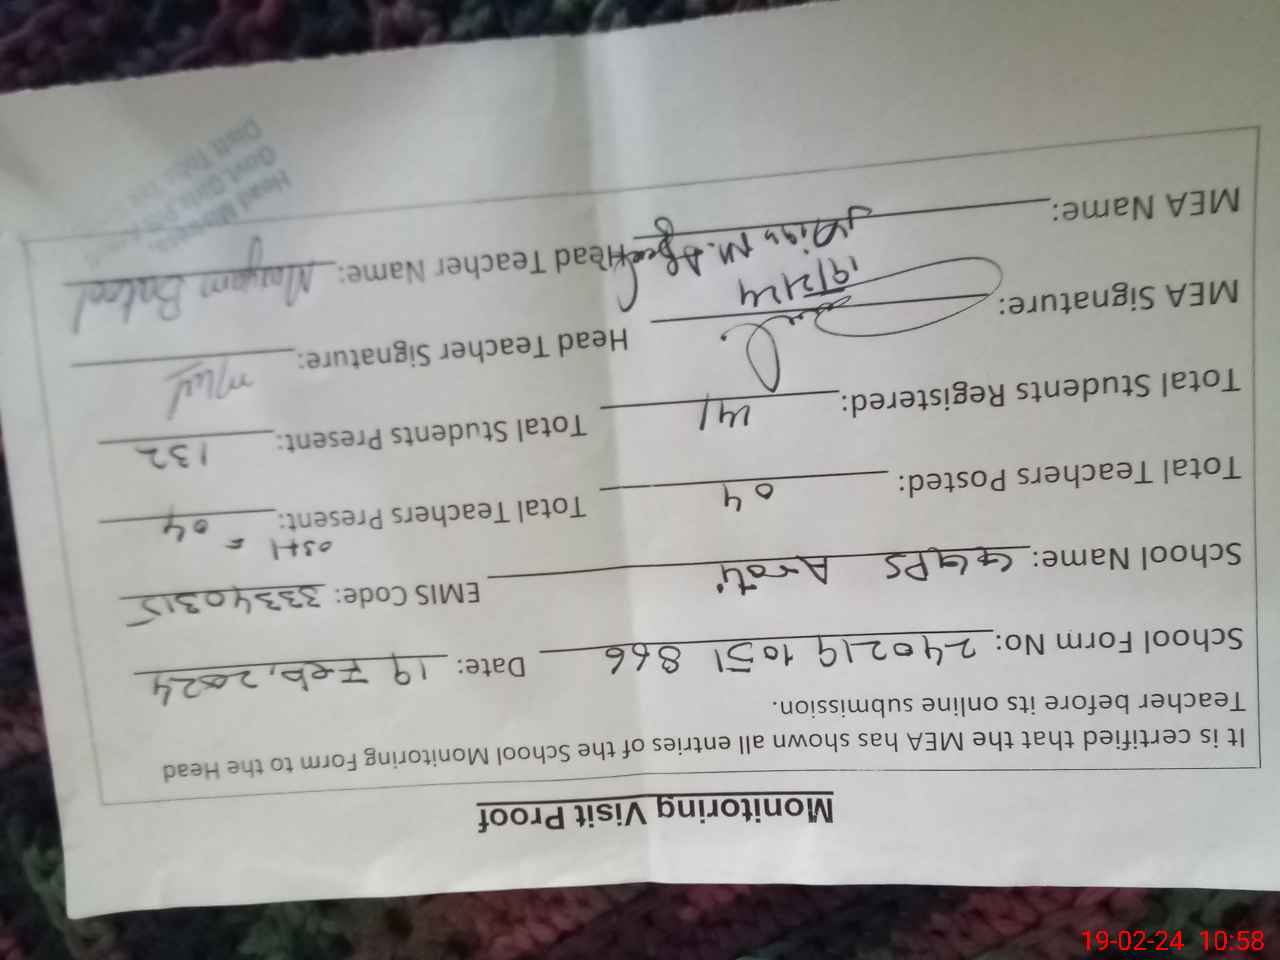 Monitoring Visit Proof
It is certified that the MEA has shown all entries of the School Monitoring Form to the Head
Teacher before its online submission.
School Form No: 240219 1051 866 Date: 19 Feb, 2024
School Name: GGPS Aroti EMIS Code: 33340315
03+1 =
Total Teachers Posted: 04 Total Teachers Present: 04
Total Students Registered: 141 Total Students Present: 132
MEA Signature: 19/2/24 Head Teacher Signature:
MEA Name: M. Head Teacher Name: Maryam Batool
Head
Govt. Girls
19-02-24 10:58